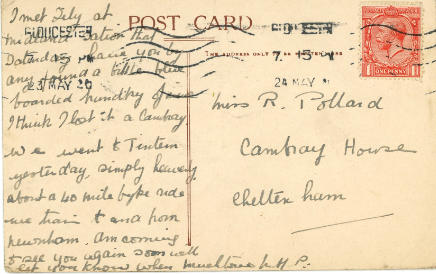 I met Lily at
midland station that
Saturday have you by
any found a little blue
I think I lost it a Cambray.
We went to Tintern
yesterday, simply heavenly
about a 40 mile byke ride
we train to and from
newnham. Am coming
to see you again soon will
let you know when much love
POST CARD
THE ADDRESS ONLY TO BE WRITTEN HERE
GLOUCESTER
7. 15 PM
24 MAY
ONE PENNY
Miss R. Pollard
Cambray House
Cheltenham